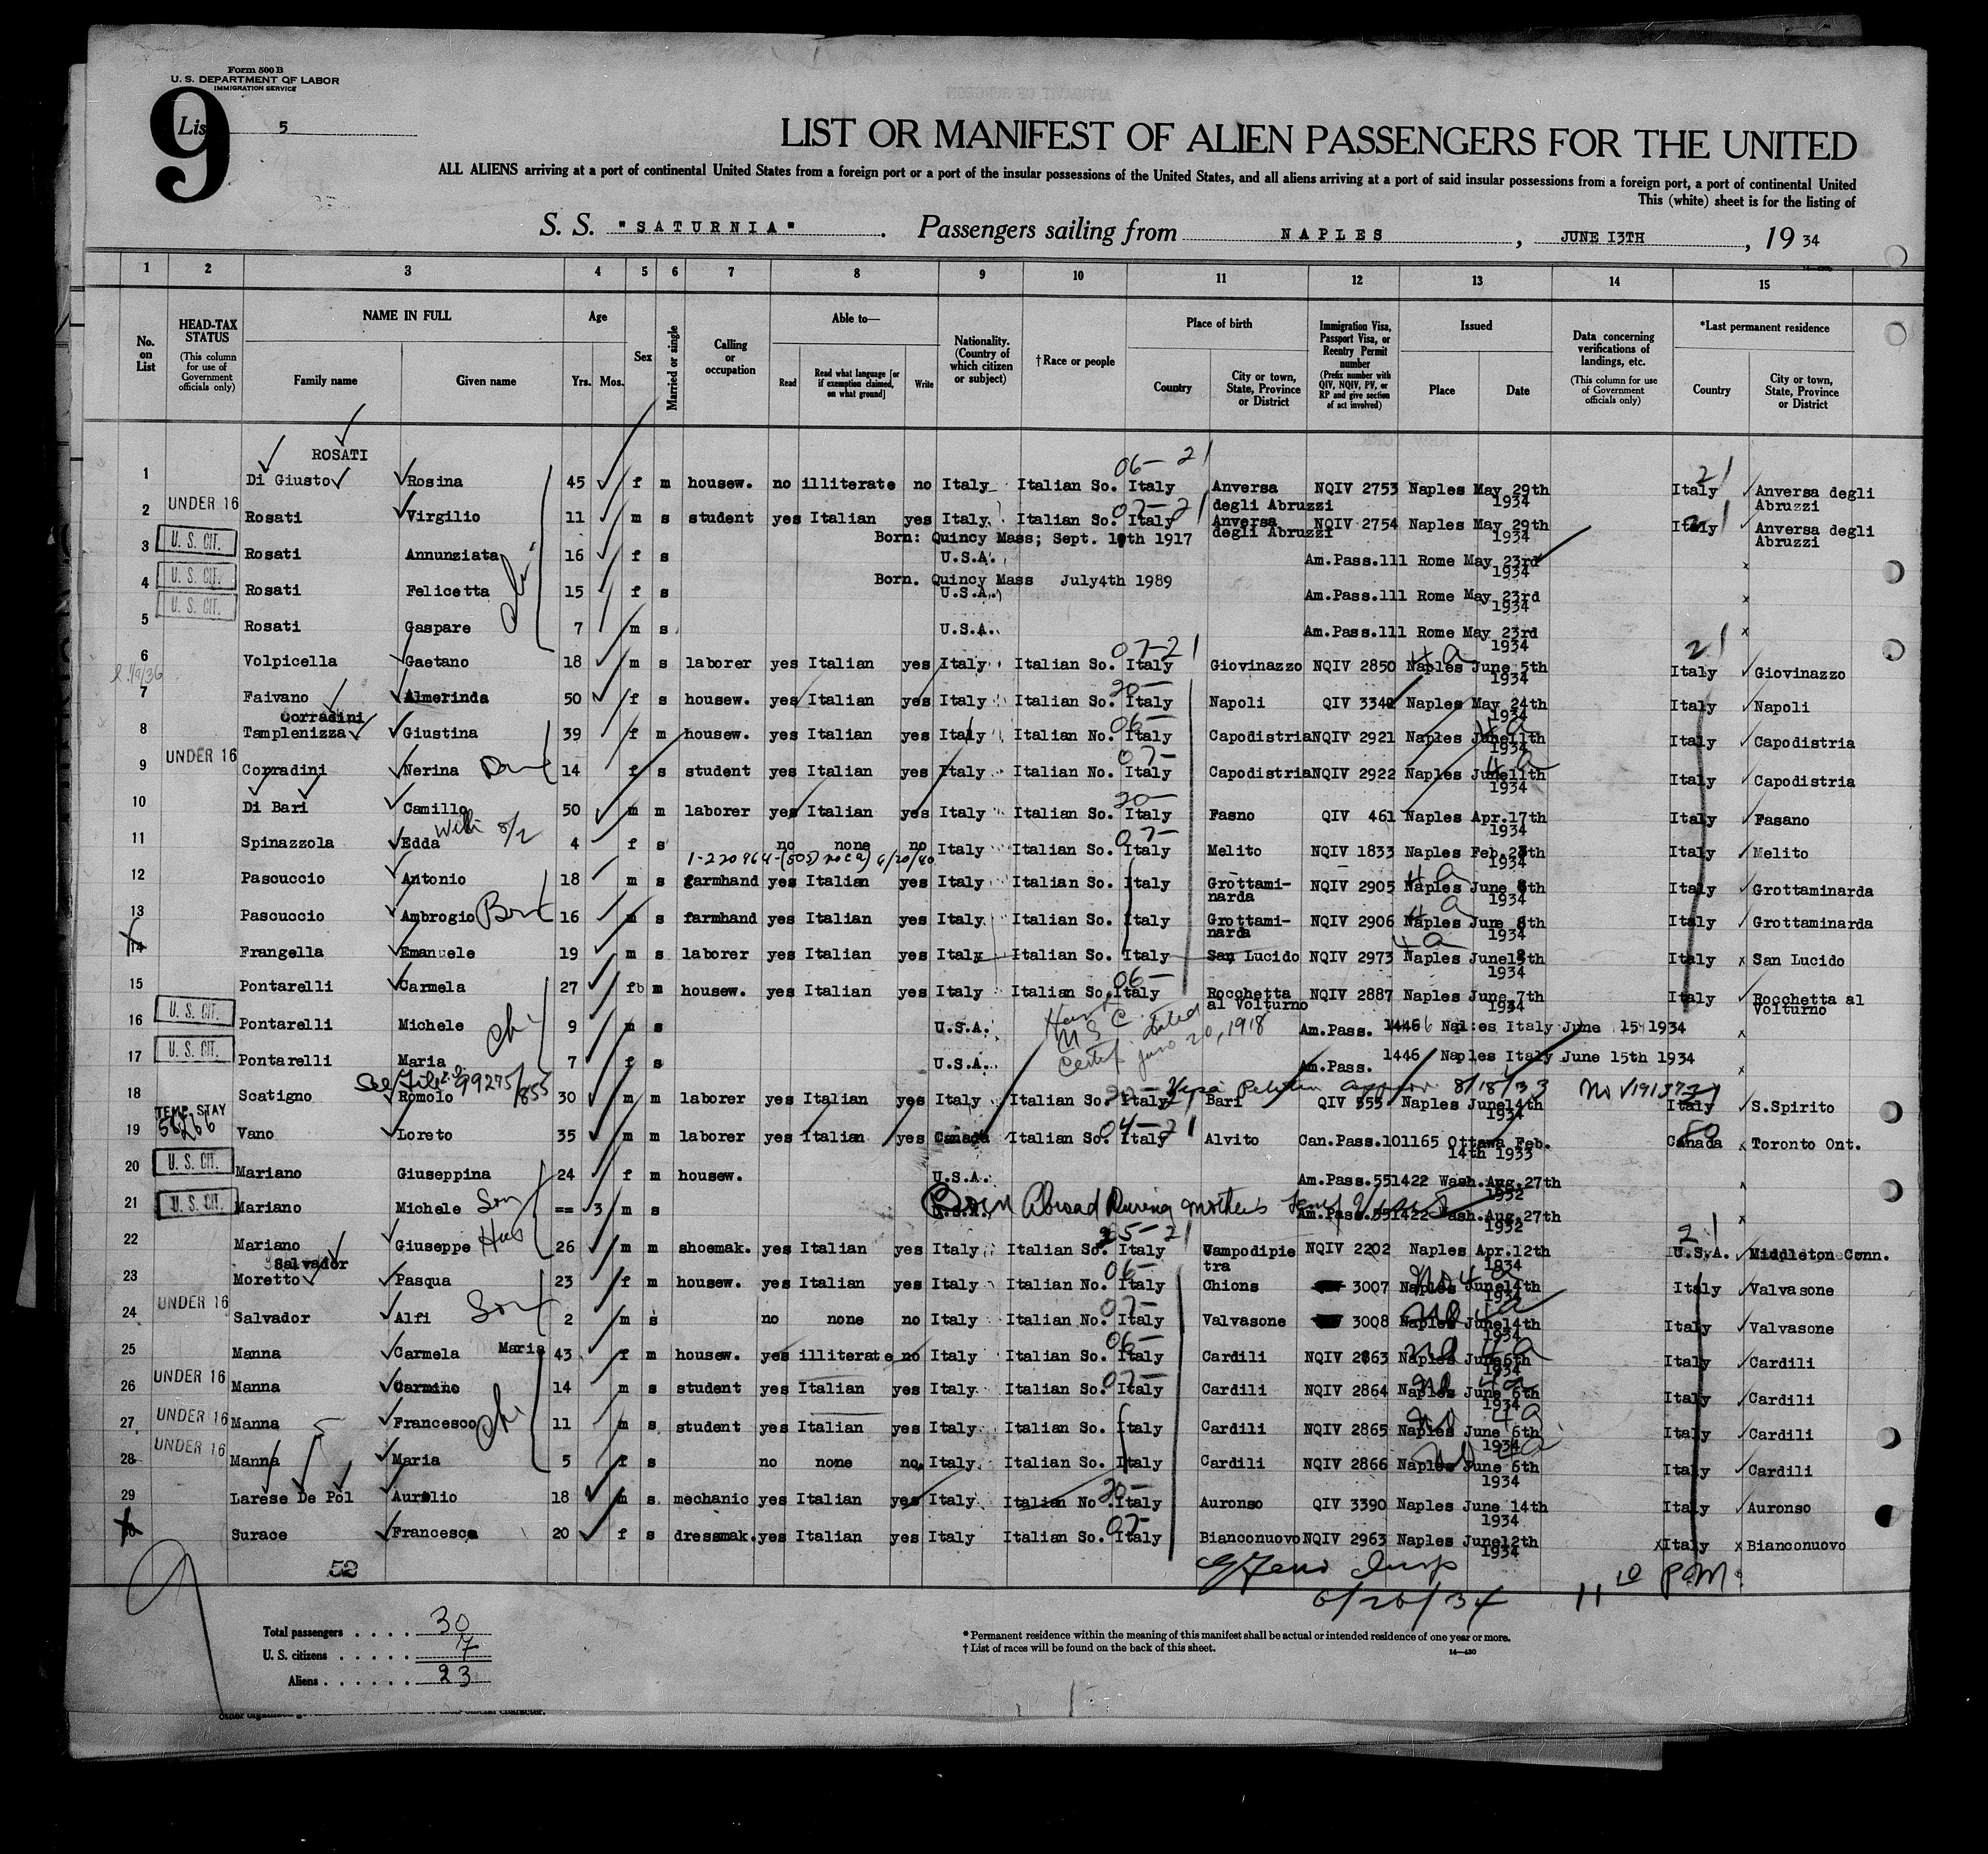 Form 500 B
U. S. DEPARTMENT OF LABOR
IMMIGRATION SERVICE
9
List 5
LIST OR MANIFEST OF ALIEN PASSENGERS FOR THE UNITED
ALL ALIENS arriving at a port of continental United States from a foreign port or a port of the insular possessions of the United States, and all aliens arriving at a port of said insular possessions from a foreign port, a port of continental United
This (white) sheet is for the listing of
S. S. "SATURNIA". Passengers sailing from NAPLES, JUNE 13TH, 19 34
1 2 3 4 5 6 7 8 9 10 11 12 13 14 15
No. on List
HEAD-TAX STATUS (This column for use of Government officials only)
NAME IN FULL Family name Given name
Age Yrs. Mos.
Sex
Married or single
Calling or occupation
Able to— Read Read what language [or if exemption claimed, on what ground] Write
Nationality. (Country of which citizen or subject)
†Race or people
Place of birth Country City or town, State, Province or District
Immigration Visa, Passport Visa, or Reentry Permit number (Prefix number with QIV, NQIV, PV, or RP and give section of act involved)
Issued Place Date
Data concerning verifications of landings, etc. (This column for use of Government officials only)
*Last permanent residence Country City or town, State, Province or District
ROSATI
06— 21
1 Di Giusto Rosina 45 f m housew. no illiterate no Italy Italian So. Italy Anversa degli Abruzzi NQIV 2753 Naples May 29th 1934 Italy Anversa degli Abruzzi
2 UNDER 16 Rosati Virgilio 11 m s student yes Italian yes Italy Italian So. Italy Anversa degli Abruzzi NQIV 2754 Naples May 29th 1934 Italy Anversa degli Abruzzi
Born: Quincy Mass; Sept. 10th 1917
3 U. S. CIT. Rosati Annunziata 16 f s U.S.A. Am.Pass.111 Rome May 23rd 1934 x
Born. Quincy Mass July4th 1989
4 U. S. CIT. Rosati Felicetta 15 f s U.S.A. Am.Pass.111 Rome May 23rd 1934 x
5 U. S. CIT. Rosati Gaspare 7 m s U.S.A. Am.Pass.111 Rome May 23rd 1934 x
6 Volpicella Gaetano 18 m s laborer yes Italian yes Italy Italian So. Italy Giovinazzo NQIV 2850 Naples June 5th 1934 Italy Giovinazzo
7 Faivano Almerinda 50 f s housew. yes Italian yes Italy Italian So. Italy Napoli QIV 3342 Naples May 24th 1934 Italy Napoli
Corradini
8 Tamplenizza Giustina 39 f m housew. yes Italian yes Italy Italian No. Italy Capodistria NQIV 2921 Naples June11th 1934 Italy Capodistria
9 UNDER 16 Corradini Nerina 14 f s student yes Italian yes Italy Italian No. Italy Capodistria NQIV 2922 Naples June11th 1934 Italy Capodistria
10 Di Bari Camillo 50 m m laborer yes Italian yes Italy Italian So. Italy Fasno QIV 461 Naples Apr.17th 1934 Italy Fasano
11 Spinazzola Edda With 8/2 4 f s no none no Italy Italian So. Italy Melito NQIV 1833 Naples Feb.28th 1934 Italy Melito
12 Pascuccio Antonio 18 m s farmhand yes Italian yes Italy Italian So. Italy Grottaminarda NQIV 2905 Naples June 8th 1934 Italy Grottaminarda
13 Pascuccio Ambrogio 16 m s farmhand yes Italian yes Italy Italian So. Italy Grottaminarda NQIV 2906 Naples June 8th 1934 Italy Grottaminarda
14 Frangella Emanuele 19 m s laborer yes Italian yes Italy Italian So. Italy San Lucido NQIV 2973 Naples 1934 Italy x San Lucido
15 Pontarelli Carmela 27 f m housew. yes Italian yes Italy Italian So. Italy Rocchetta al Volturno NQIV 2887 Naples June 7th 1934 Italy Rocchetta al Volturno
16 U. S. CIT. Pontarelli Michele 9 m s U.S.A. Am.Pass. 1446 Naples Italy June 15 1934 x
17 U. S. CIT. Pontarelli Maria 7 f s U.S.A. Am.Pass. 1446 Naples Italy June 15th 1934 x
See File 99275/855
Visa Petition approv. 8/18/33
18 Scatigno Romolo 30 m m laborer yes Italian yes Italy Italian So. Italy Bari QIV 555 Naples June14th 1934 Italy S.Spirito
19 TEMP. STAY Vano Loreto 35 m m laborer yes Italian yes Canada Italian So. Italy Alvito Can.Pass.101165 Ottawa Feb. 14th 1933 Canada x Toronto Ont.
20 U. S. CIT. Mariano Giuseppina 24 f m housew. U.S.A. Am.Pass.551422 Wash.Aug.27th 1932
Born Abroad During mothers
21 U. S. CIT. Mariano Michele Son == 3 m s Am.Pass.551422 Wash.Aug.27th 1932 x
22 Mariano Giuseppe Hus 26 m m shoemak. yes Italian yes Italy Italian So. Italy Campodipietra NQIV 2202 Naples Apr.12th 1934 U.S.A. Middleton Conn.
Salvador
23 Moretto Pasqua 23 f m housew. yes Italian yes Italy Italian No. Italy Chions 3007 Naples June14th 1934 Italy Valvasone
24 UNDER 16 Salvador Alfi Son 2 m s no none no Italy Italian No. Italy Valvasone 3008 Naples June14th 1934 Italy Valvasone
25 Manna Carmela Maria 43 f m housew. yes illiterate no Italy Italian So. Italy Cardili NQIV 2863 Naples June6th 1934 Italy Cardili
26 UNDER 16 Manna Carmino 14 m s student yes Italian yes Italy Italian So. Italy Cardili NQIV 2864 Naples June 6th 1934 Italy Cardili
27 UNDER 16 Manna Francesco 11 m s student yes Italian yes Italy Italian So. Italy Cardili NQIV 2865 Naples June 6th 1934 Italy Cardili
28 UNDER 16 Manna Maria 5 f s no none no Italy Italian So. Italy Cardili NQIV 2866 Naples June 6th 1934 Italy Cardili
29 Larese De Pol Aurelio 18 m s mechanic yes Italian yes Italy Italian No. Italy Auronso QIV 3390 Naples June 14th 1934 Italy Auronso
Surace Francesca 20 f s dressmak. yes Italian yes Italy Italian So. Italy Bianconuovo NQIV 2963 Naples June12th 1934 x Italy x Bianconuovo
52
6/26/34
Total passengers . . . . 30
U. S. citizens . . . . . 7
Aliens . . . . . . 23
* Permanent residence within the meaning of this manifest shall be actual or intended residence of one year or more.
† List of races will be found on the back of this sheet.
14—430